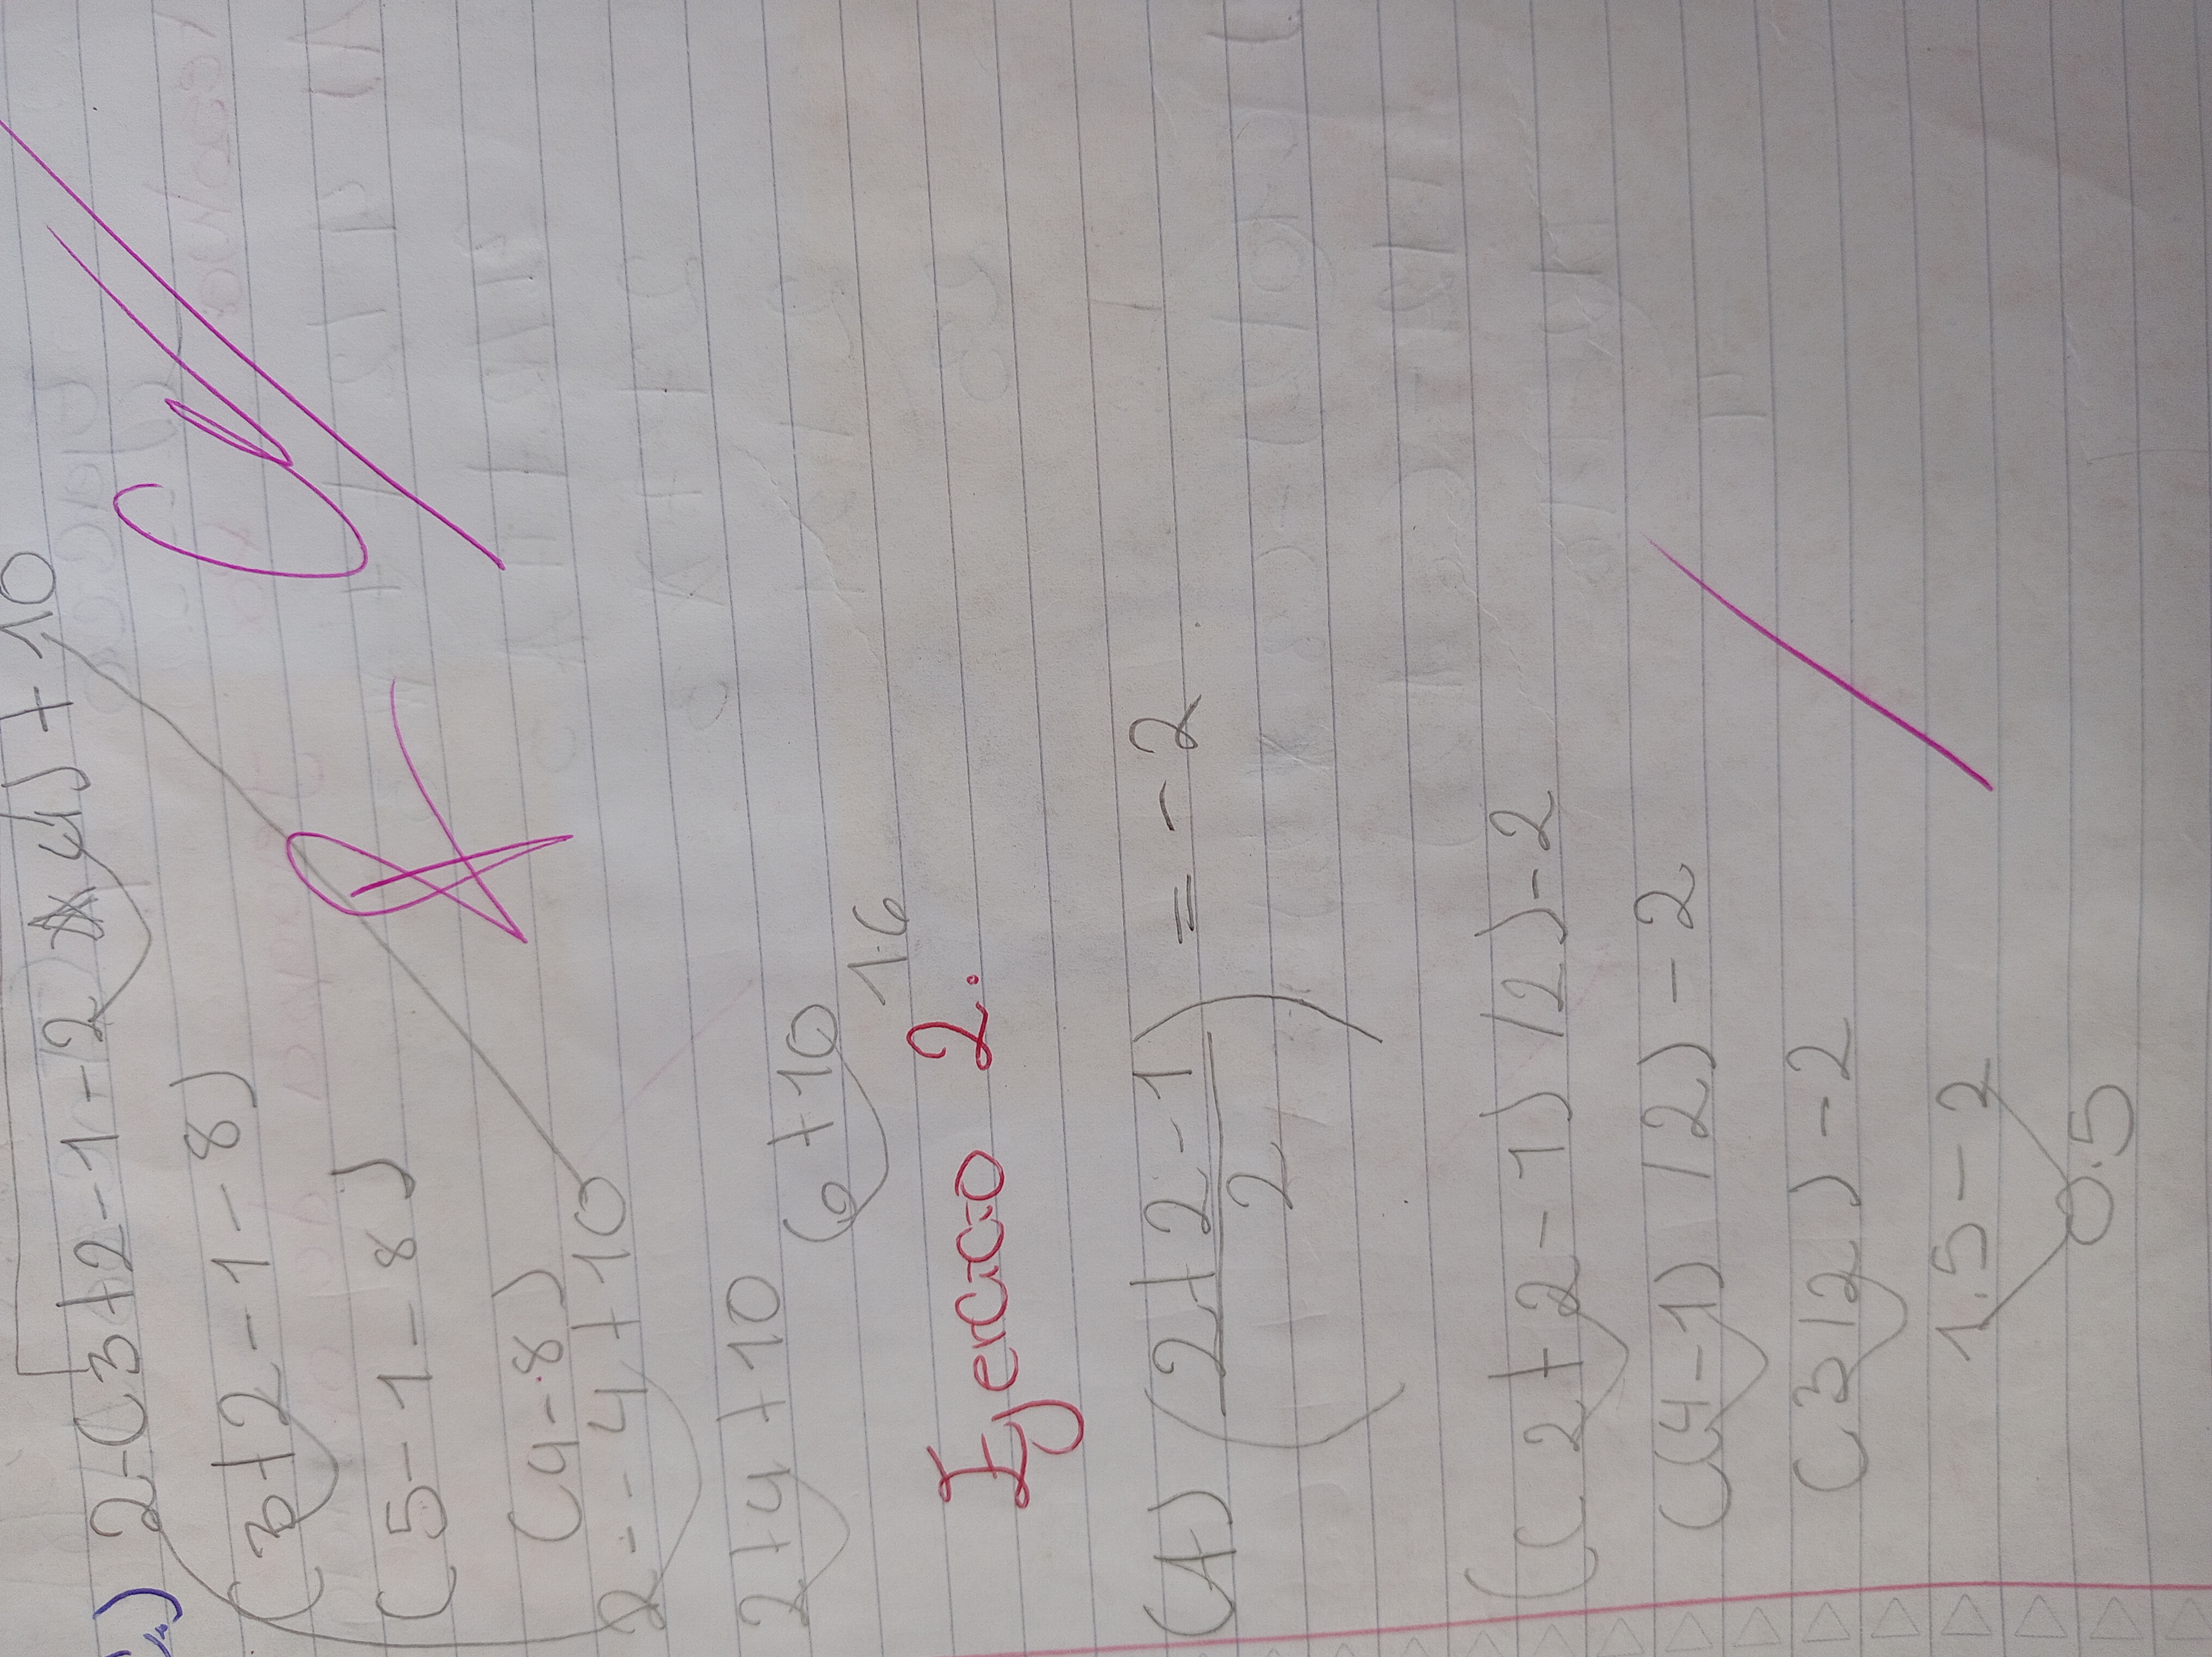 2-(3+2-1-2 4)+10
(3+2-1-8)
(5-1-8)
(4-8)
2--4+10
2+4+10
6+10
16
Ejercicio 2.
(A) (2+2-1/2) = -2
((2+2-1)/2)-2
((4-1)/2)-2
(3/2)-2
1.5-2
0.5